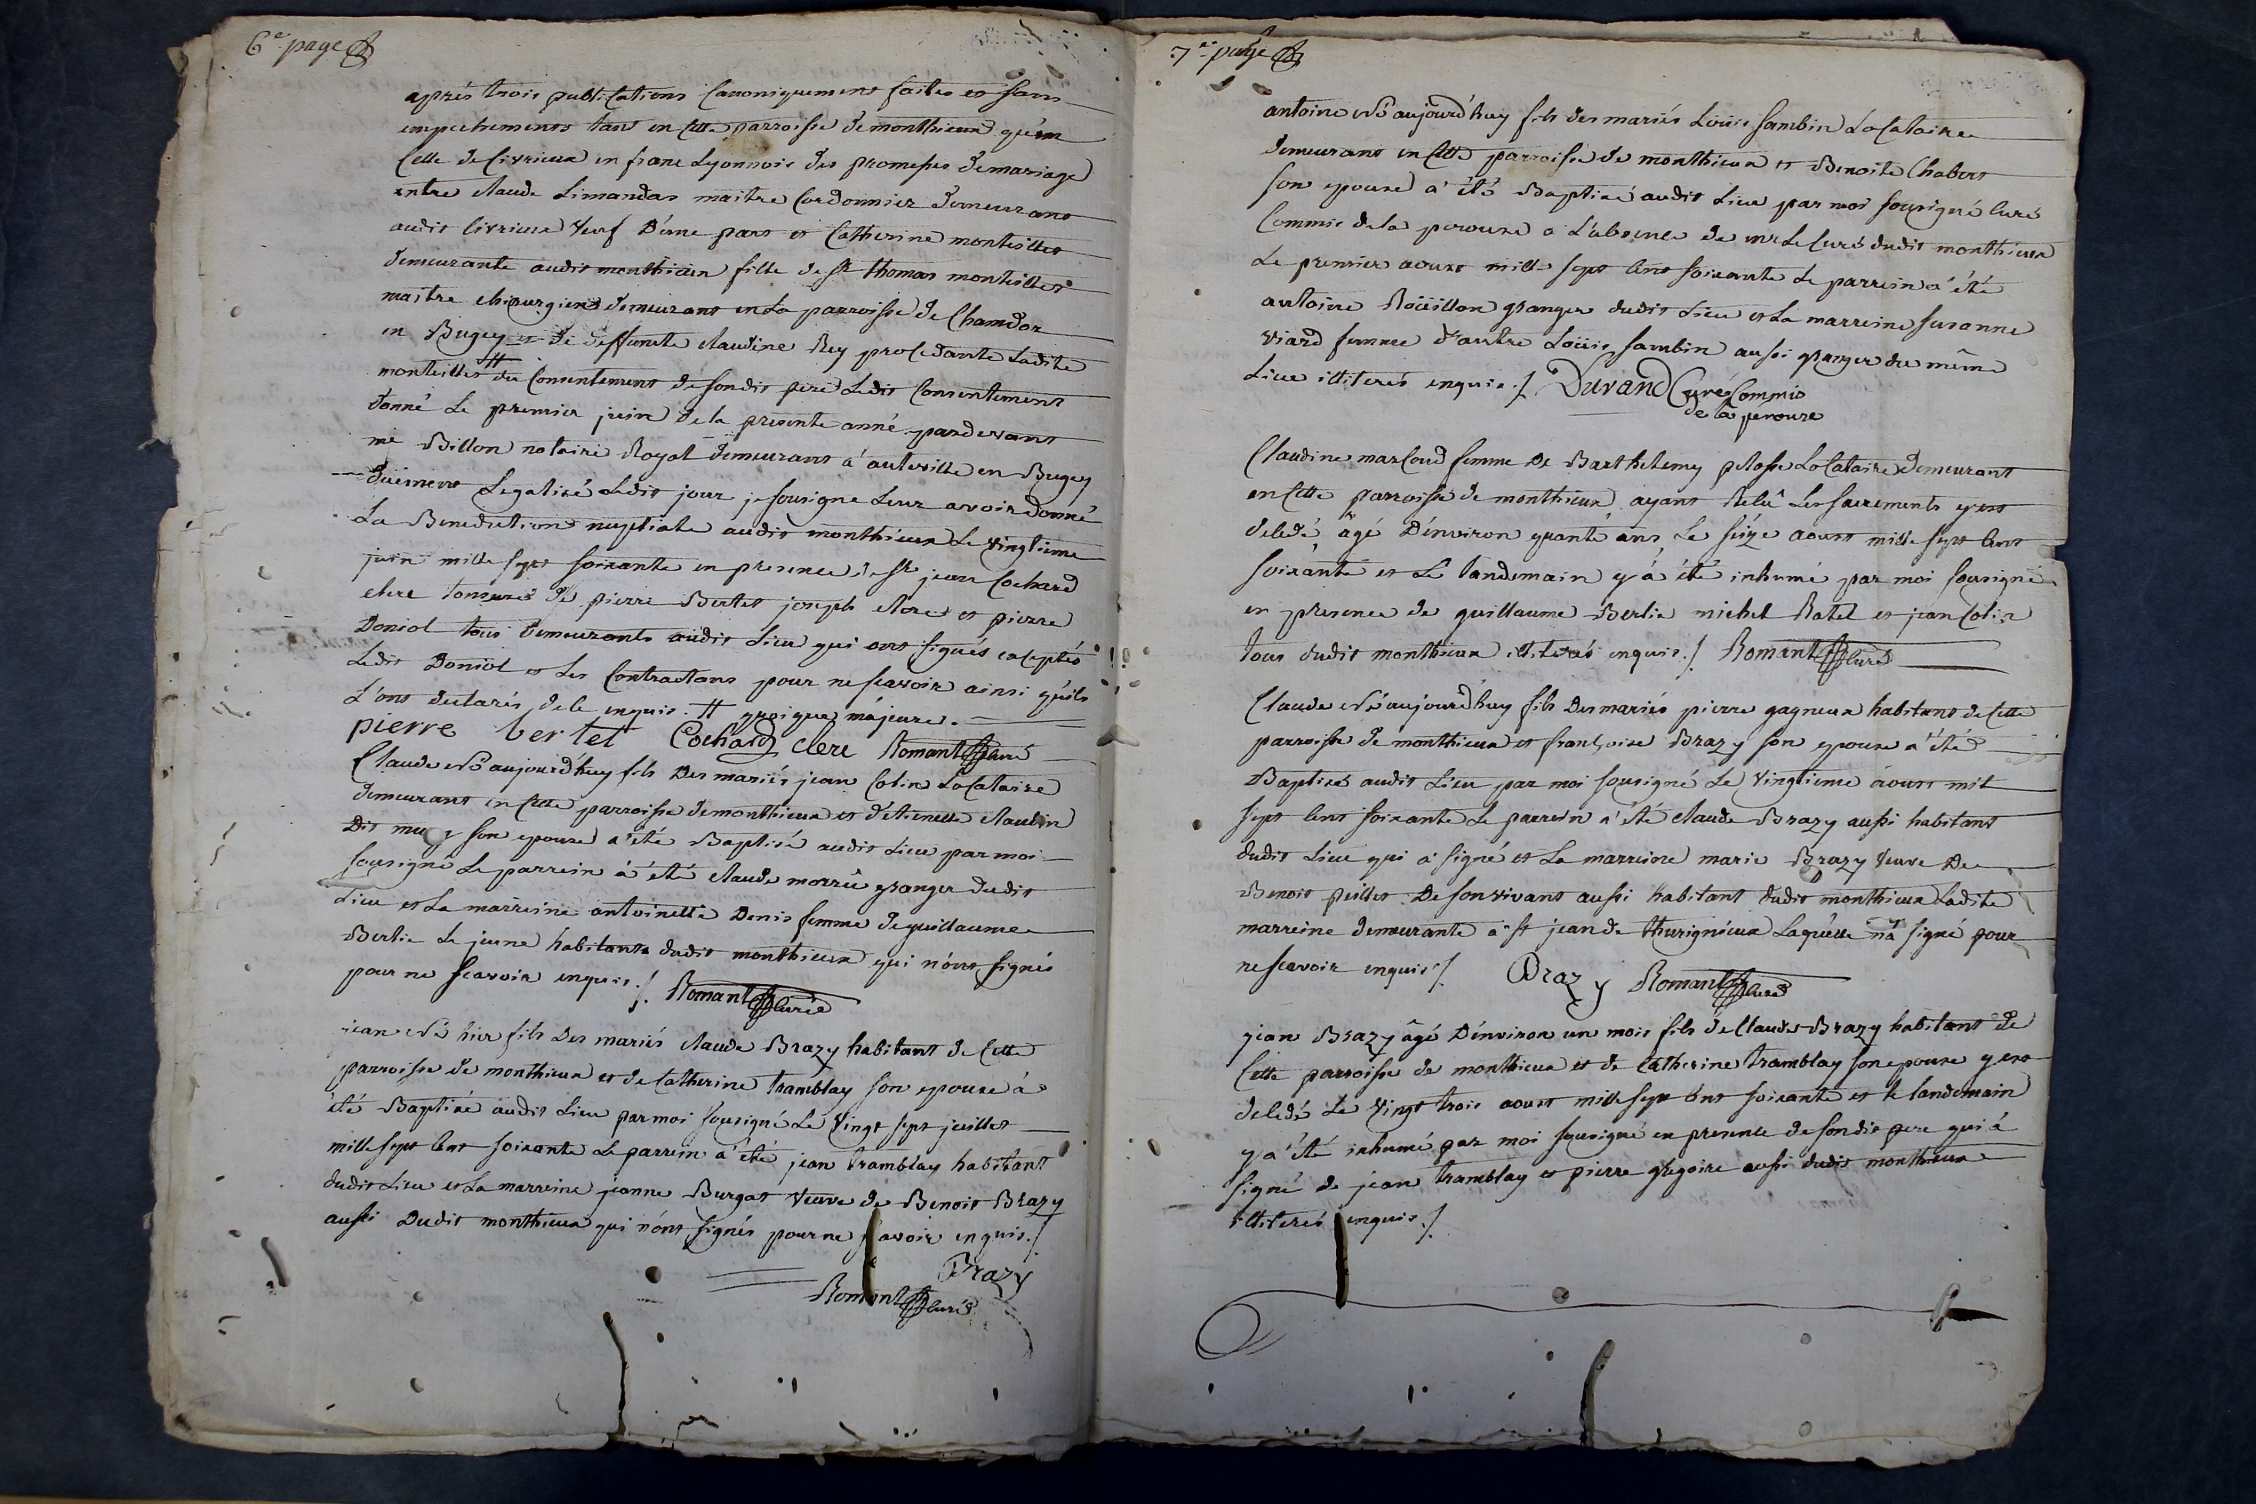 6e page
après trois publications Canoniquement faites et sans
empechements tant en Cette parroisse de monthieux qu'en
Celle de Civrieux en franc Lyonnois des promesses de mariage
entre claude Limandas maitre Cordonnier demeurant
audit Civrieux veuf D'une part et Catherine monteillet
demeurante audit monthieux fille de sr thomas monteillet
maitre chirurgien demeurant en La parroisse de Chamdor
en Bugey et de deffunte claudine Rey procedante Ladite
monteillet # du Consentement de sondit pere Ledit Consentement
donné Le premier juin de la presente anné pardevant
me Billon notaire Royal demeurant a auteville en Bugey
duëment Legalisé Ledit jour je sousigne Leur avoir donné
La Benediction nuptiale audit monthieux Le vingtieme
juin mille sept soixante en presence de sr jean Cochard
clerc tonsuré de pierre Bertet joseph clore et pierre
Doniol tous demeurants audit Lieu qui ont signés exceptés
Ledit Doniol et Les Contractans pour ne scavoir ainsi qu'ils
L'ont declarés de ce enquis. # quoique majeure.
pierre bertet Cochard clerc Romant Curé
Claude Né aujourd'huy fils Des mariés jean Colin LoCataire
demeurant en Cette parroisse de monthieux et d'etienette claudin
Dit son epouse a été Baptisé audit Lieu par moi
sousigné Le parrein a été claude morrû granger dudit
Lieu et La marreine antoinette Denis femme de guillaume
Berlie Le jeune habitants dudit monthieux qui n'ont signés
pour ne scavoir enquis ./. Romant Curé
jean Né hier fils Des mariés claude Brazy habitant de Cette
parroisse de monthieux et de Catherine Tramblay son epouse a
été Baptisé audit Lieu par moi sousigné Le vingt sept juillet
mille sept Cent soixante Le parrein a été jean Tramblay habitant
dudit Lieu et La marreine jeanne Burgat veuve de Benoit Brazy
aussi Dudit monthieux qui n'ont signés pour ne scavoir enquis ./.
Brazy
Romant Curé
7e page
antoine Né aujourd'huy fils des mariés Loüis sambin LoCataire
demeurant en Cette parroisse de monthieux et Benoite Chabert
son epouse a été Baptisé audit Lieu par moi sousigné Curé
Commis de la perouse a L'absence de mr Le Curé dudit monthieux
Le premier aoust mille sept Cent soixante Le parrein a été
antoine Roüillon granger dudit Lieu et La marreine susanne
viard femme d'autre Loüis sambin aussi granger du même
Lieu illiterés enquis ./. Durand Curé Commis
de la perouse
Claudine marCoud femme de Barthelemy pelosse LoCataire Demeurant
en Cette parroisse de monthieux ayant Reçû Les sacrements y est
decedé âgé D'environ quarante ans Le seize aoust mille sept Cent
soixante et Le landemain y a été inhumé par moi sousigné
en presence de guillaume Berlie michel Ratel et jean Colin
tous dudit monthieux illiterés enquis ./. Romant Curé
Claude Né aujourd'huy fils Des mariés pierre gagneux habitant de Cette
parroisse de monthieux et françoise Brazy son epouse a été
Baptisé audit Lieu par moi sousigné Le vingtieme aoust mil
sept Cent soixante Le parrein a été claude Brazy aussi habitant
dudit Lieu qui a signé et La marreine marie Brazy veuve De
Benoit peillet De son vivant aussi habitant dudit monthieux Ladite
marreine demeurante a st jean de thurigneux Laquelle n'a signé pour
ne scavoir enquis ./. Brazy Romant Curé
jean Brazy âgé D'environ un mois fils de Claude Brazy habitant de
Cette parroisse de monthieux et de Catherine Tramblay son epouse y est
decedé Le vingt trois aoust mille sept Cent soixante et le landemain
y a été inhumé par moi sousigné en presence de sondit pere qui a
signé de jean Tramblay et pierre gregoire aussi dudit monthieux
illiterés enquis ./.